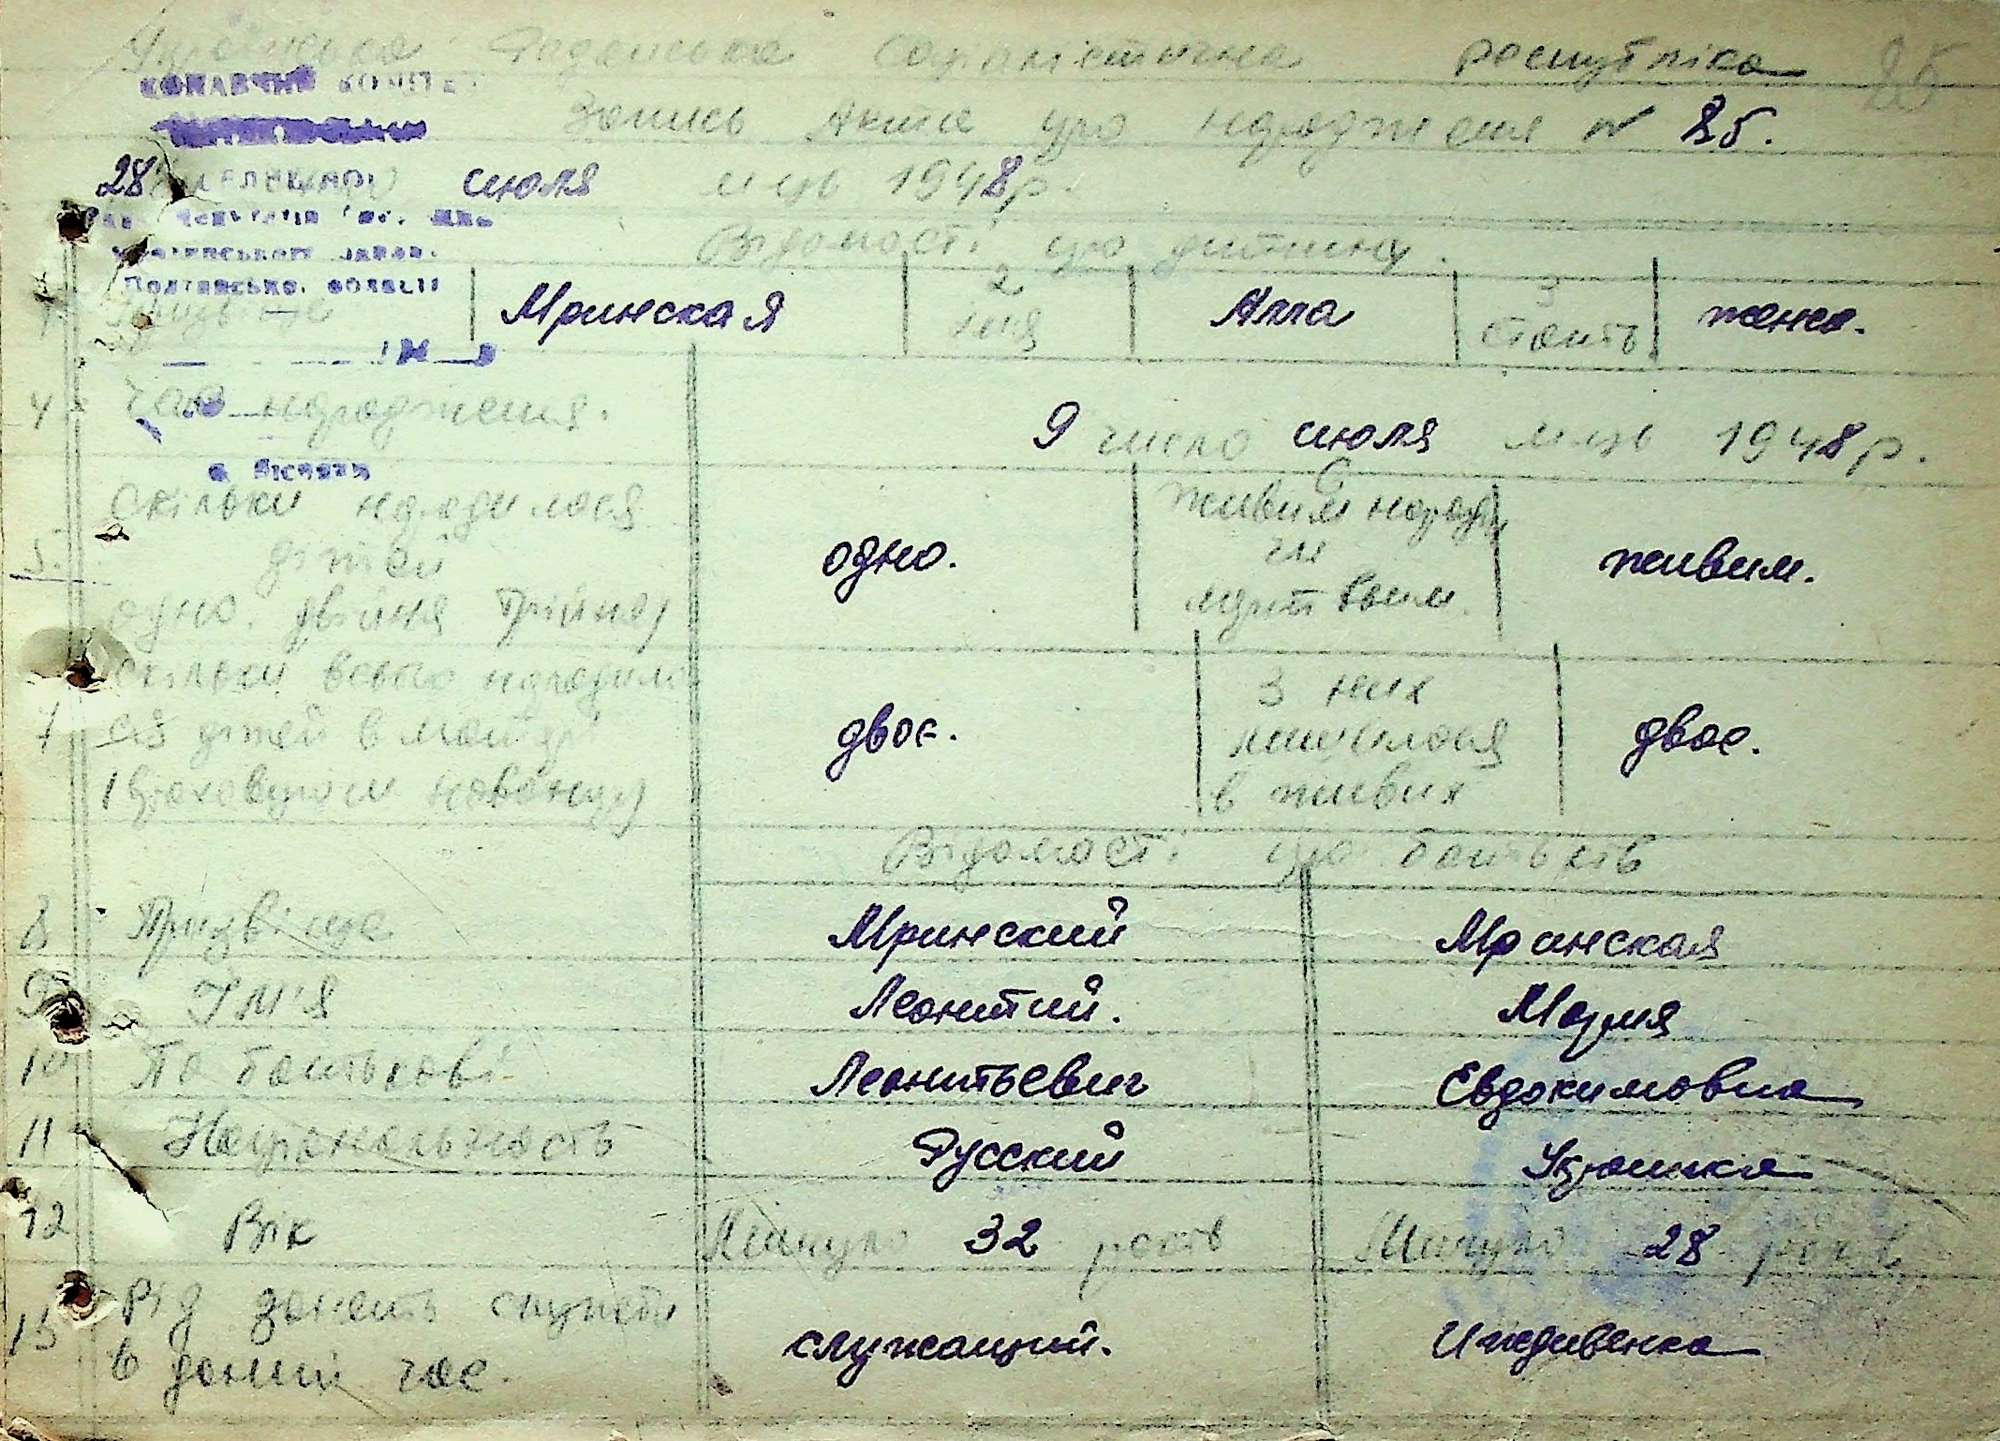 Українська Радянська Соціалістична республіка 25
Запись Акта про народження № 25.
28 июля м-ць 1948р.
Полтавської області
Відомості про дитину.
1 Прізвіще Мринская 2 імя Алла 3 стать жено.
4 Час народження. 9 число июля м-ць 1948р.
с. Піснки
5. Скільки народилося дітей одно. двійня трійня) одно. 6 живим народ. чи мертвым. живим.
7 скільки всього народилося дітей в матері (враховуючи новонар) двоє. З них лишилося в живих двоє.
Відомості про батьків
8 Прізвіще Мринский Мринская
9 Ім'я Леонтий. Мария
10 По батькові Леонтьевич Евдокимовна
11 Національность Русский Украинка
12 Вік Минуло 32 років Минуло 28 років
13 Від занять служби в даний час. служащий. Иждивенка